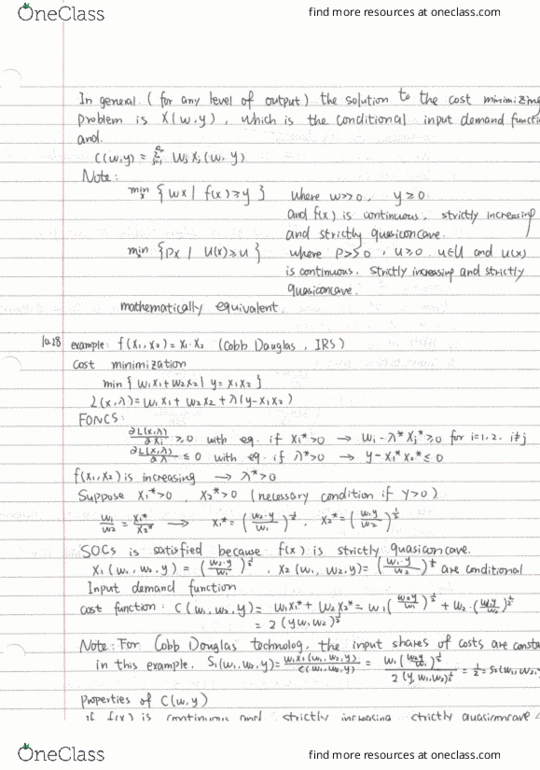 OneClass find more resources at oneclass.com
In general. ( for any level of output ) the solution to the cost minimizing
problem is X(w,y), which is the conditional input demand functi
and.
C(w,y) = Σ Wj Xj (w, y)
Note:
min {wx | f(x) ≥ y } where w>>0, y≥0
x
and f(x) is continuous, strictly increasing
and strictly quasiconcave.
min {px | u(x) ≥ u } where P>>0, u≥0, u∈U and u(x)
is continuous. strictly increasing and strictly
quasiconcave.
mathematically equivalent.
10.28 example: f(x1, x2) = x1·x2 (Cobb Douglas, IRS)
Cost minimization
min { w1x1 + w2x2 | y = x1x2 }
L(x,λ) = w1x1 + w2x2 + λ(y-x1x2)
FONCS:
∂L(x,λ)/∂xi ≥ 0 with eq. if xi*>0 → wi - λ* xj* ≥ 0 for i=1.2. i≠j
∂L(x,λ)/∂λ ≤ 0 with eq. if λ*>0 → y - x1* x2* ≤ 0
f(x1, x2) is increasing → λ*>0
Suppose x1*>0, x2*>0 (necessary condition if y>0)
→ x1* = (w2·y/w1)^½, x2* = (w1·y/w2)^½
SOCs is satisfied because f(x) is strictly quasiconcave.
X1(w1, w2, y) = (w2·y/w1)^½, X2(w1, w2, y) = (w1·y/w2)^½ are conditional
Input demand function
cost function: C(w1, w2, y) = w1x1* + w2x2* = w1(w2y/w1)^½ + w2·(w1y/w2)^½
= 2(yw1w2)^½
Note: For Cobb Douglas technolog, the input shares of costs are consta
in this example. S1(w1, w2, y) = w1x1(w1, w2, y)/C(w1, w2, y) = w1(w2y/w1)^½/2(y,w1w2)^½ = ½ = S2(w1, w2,
properties of C(w,y)
if f(x) is continuous and strictly increasing strictly quasiconcave
OneClass find more resources at oneclass.com